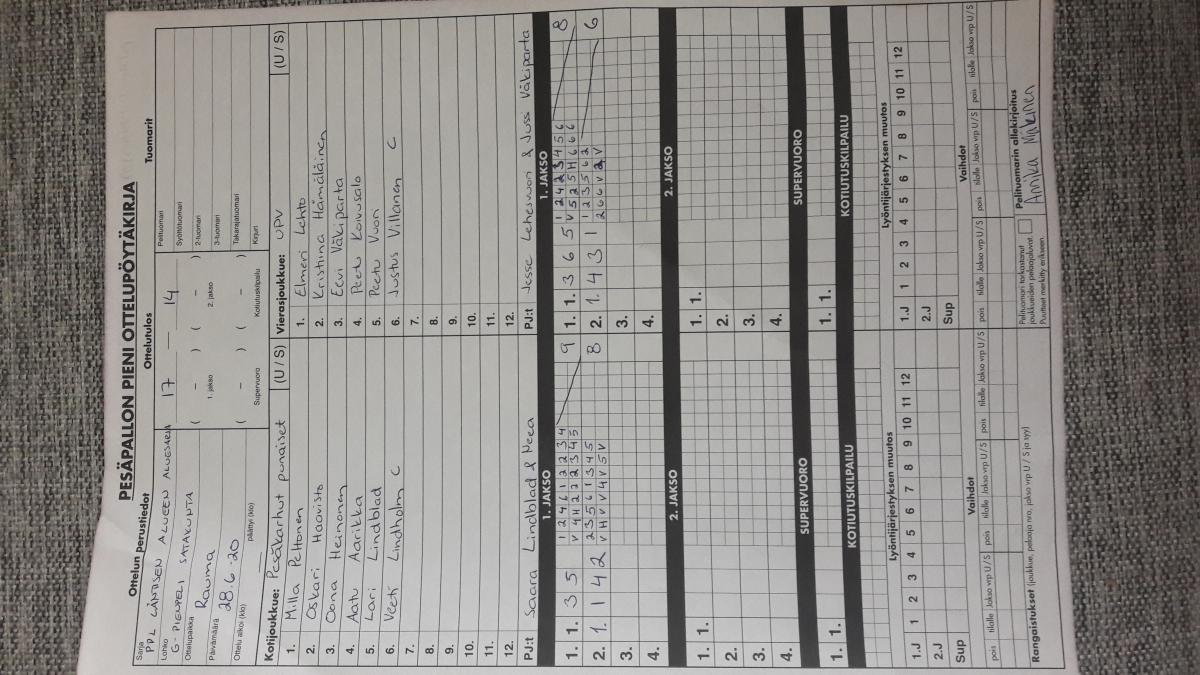 PESÄPALLON PIENI OTTELUPÖYTÄKIRJA
Ottelun perustiedot
Ottelutulos
Tuomarit
Sarja
PPL LÄNTISEN ALUEEN ALUESARJA
17 — 14
Pelituomari
Lohko
G-PIENPELI SATAKUNTA
Syöttötuomari
Ottelupaikka
Rauma
( – ) ( – )
2-tuomari
1. jakso
2. jakso
3-tuomari
Päivämäärä
28.6.20
Ottelu alkoi (klo)
päättyi (klo)
( – ) ( – )
Takarajatuomari
Supervuoro
Kotiutuskilpailu
Kirjuri
Kotijoukkue: Pesäkarhut punaiset (U / S)
1. Milla Peltonen
2. Oskari Haavisto
3. Oona Heinonen
4. Aatu Aarikka
5. Lari Lindblad
6. Veeti Lindholm C
7.
8.
9.
10.
11.
12.
PJ:t Saara Lindblad & Neea
Vierasjoukkue: UPV (U / S)
1. Elmeri Lehto
2. Kristiina Hämäläinen
3. Eevi Väkiparta
4. Peetu Koivusalo
5. Peetu Vuori
6. Justus Villanen C
7.
8.
9.
10.
11.
12.
PJ:t Jesse & Jussi Väkiparta
1. JAKSO
1. 1. 3 5
1 2 4 6 1 2 2 3 4
V 4 H 2 2 2 3 4 5
9
2. 1. 1 4 2
2 3 5 6 1 3 4 5
V H V V 4 V 5 V
8
3.
4.
2. JAKSO
1. 1.
2.
3.
4.
SUPERVUORO
1. 1.
KOTIUTUSKILPAILU
1. JAKSO
1. 1. 3 6 5
8
2. 1. 4 3 1
6
3.
4.
2. JAKSO
1. 1.
2.
3.
4.
SUPERVUORO
1. 1.
KOTIUTUSKILPAILU
Lyöntijärjestyksen muutos
1.J 1 2 3 4 5 6 7 8 9 10 11 12
2.J
Sup
Vaihdot
pois tilalle Jakso vrp U / S pois tilalle Jakso vrp U / S pois tilalle Jakso vrp U / S
Lyöntijärjestyksen muutos
1.J 1 2 3 4 5 6 7 8 9 10 11 12
2.J
Sup
Vaihdot
pois tilalle Jakso vrp U / S pois tilalle Jakso vrp U / S pois tilalle Jakso vrp U / S
Rangaistukset (joukkue, pelaaja nro, jakso vrp U / S ja syy)
Pelituomari tarkastanut
joukkueiden pelaajaluvat.
Puutteet merkitty erikseen.
Pelituomarin allekirjoitus
Annika Mäkinen